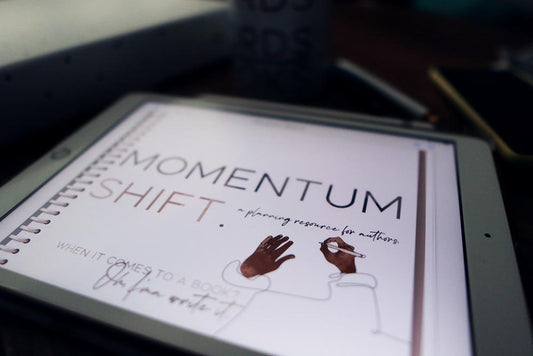 RDS
RDS
MOMENTUM
SHIFT.
a planning resource for authors.
WHEN IT COMES TO A BOOK?
Oh I'ma write it